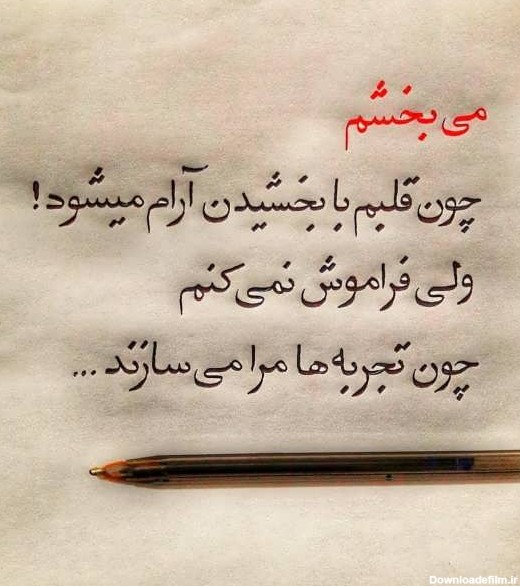 می‌بخشم
چون قلبم با بخشیدن آرام میشود!
ولی فراموش نمی‌کنم
چون تجربه‌ها مرا می‌سازند ...
Downloadefilm.ir